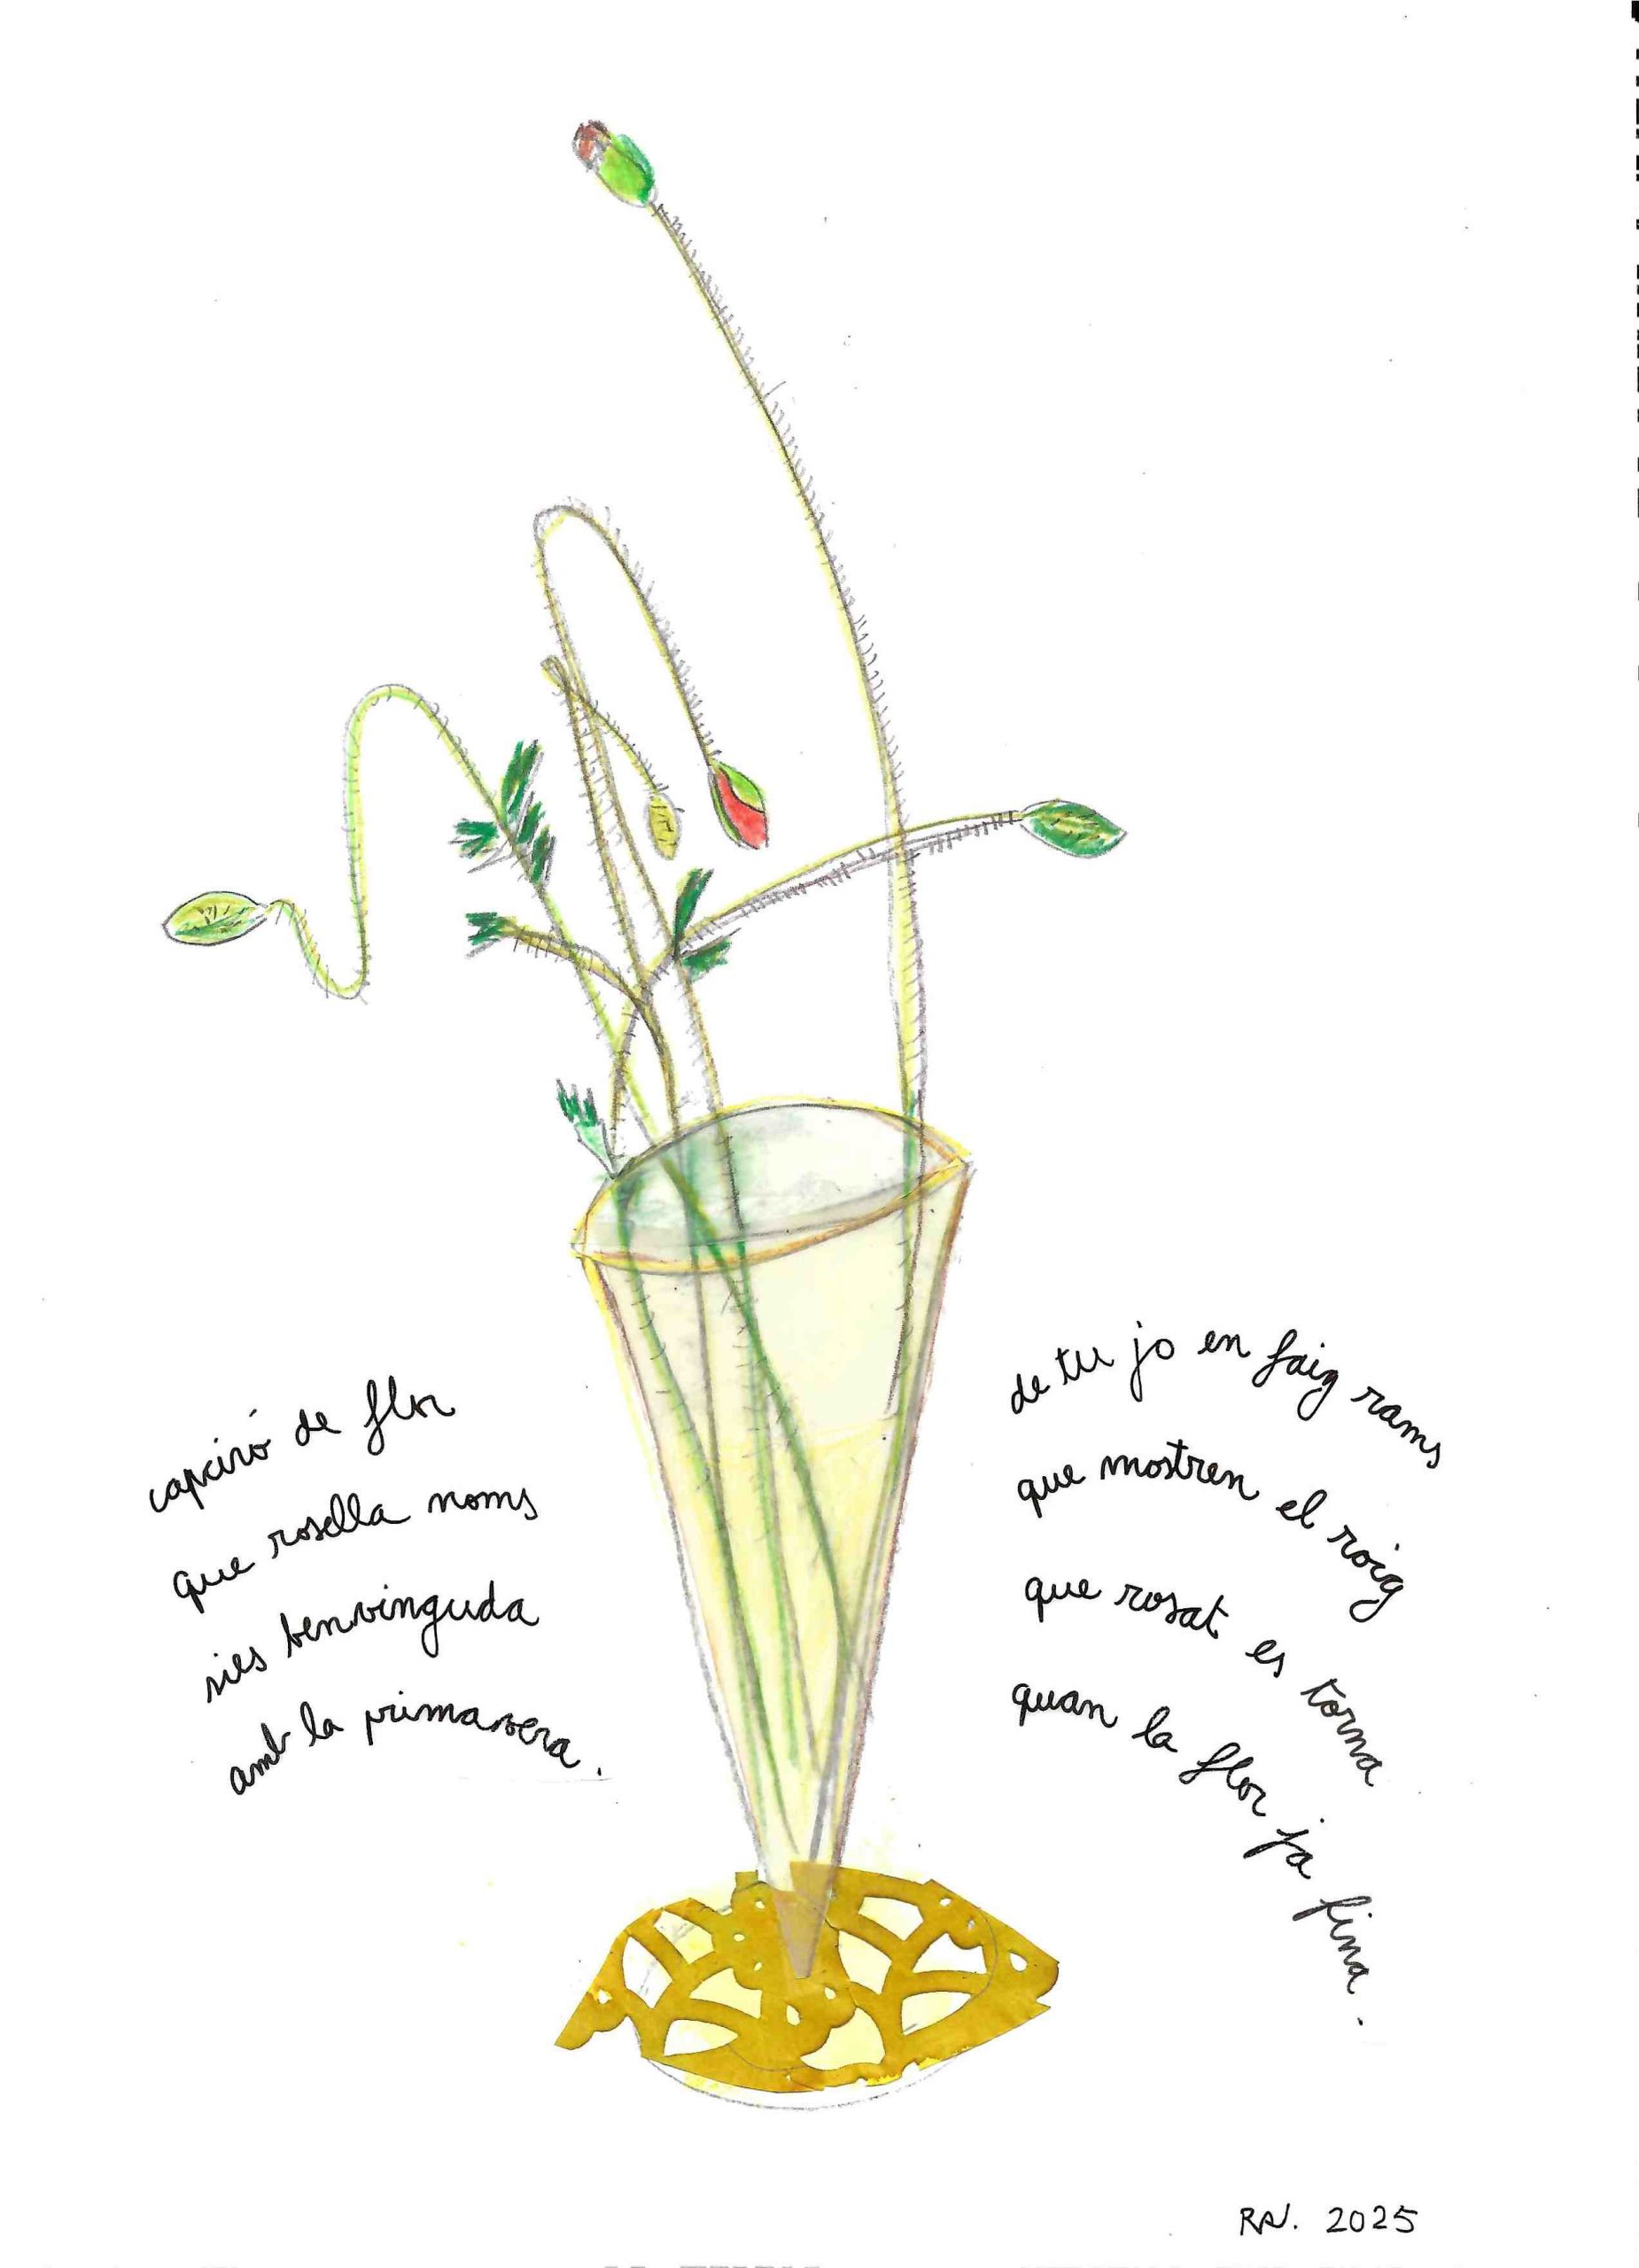 capciró de flor
que rosella noms
sies benvinguda
amb la primavera.
de tu jo en faig rams
que mostren el roig
que rosat es torna
quan la flor ja fina.
RN. 2025